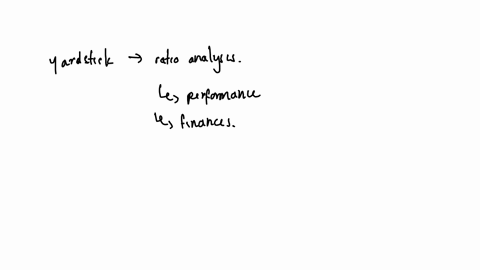 yardstick → ratio analysis.
↳ performance
↳ finances.